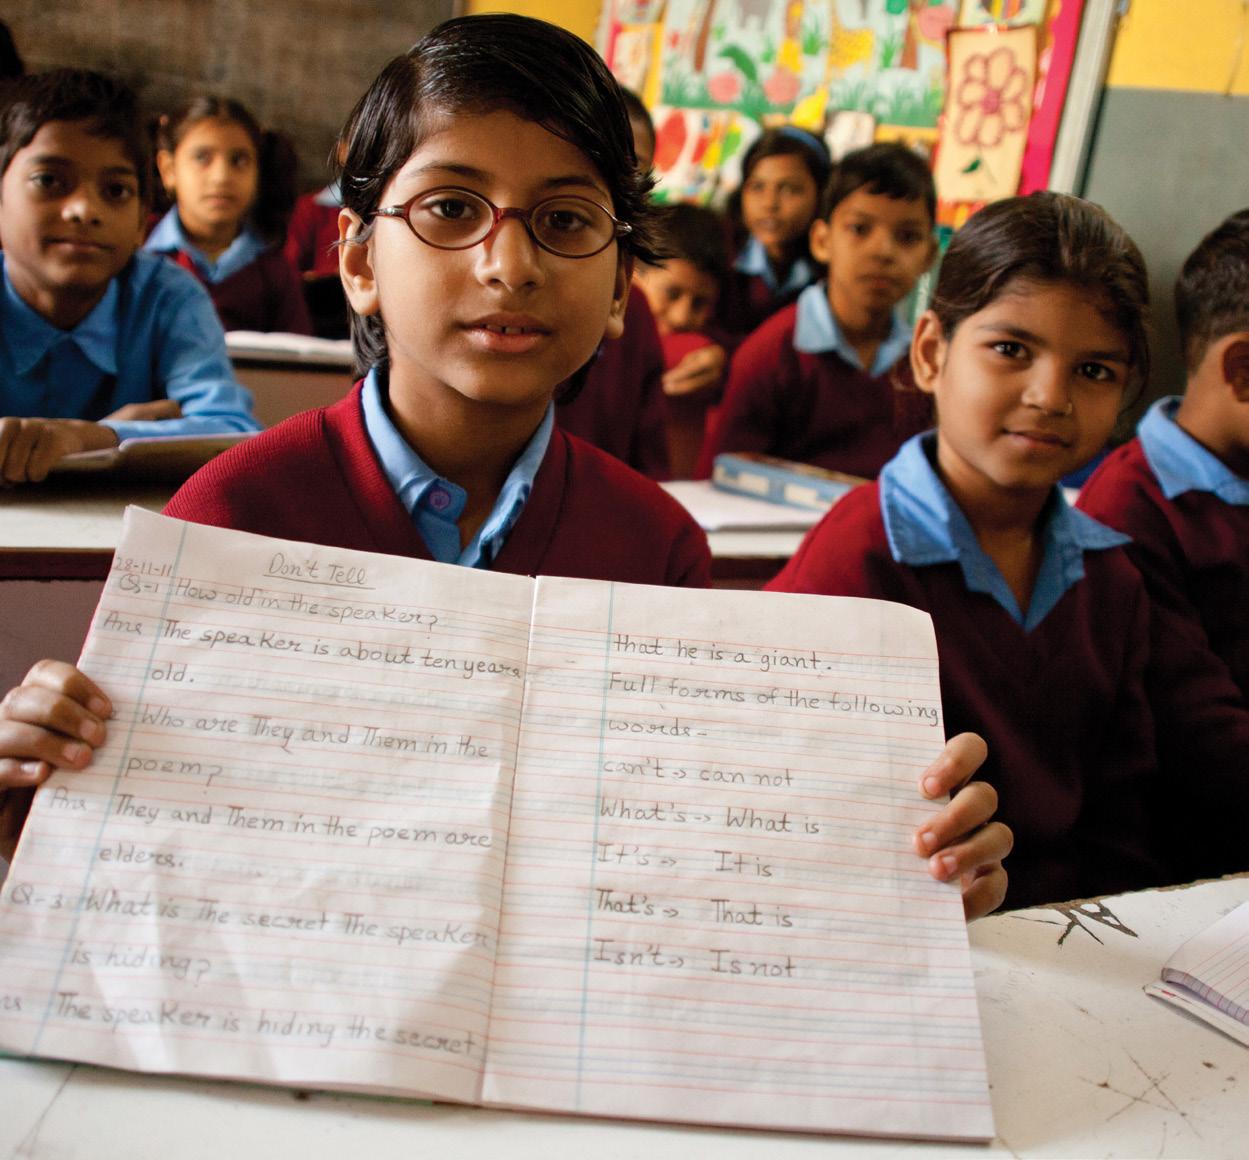 Don't Tell
28-11-11
Q-1 How old in the speaker?
Ans The speaker is about ten years
old.
Who are They and Them in the
poem?
Ans They and Them in the poem are
elders.
Q-3 What is The secret The speaker
is hiding?
ns The speaker is hiding the secret
that he is a giant.
Full forms of the following
words-
can't -> can not
What's -> What is
It's -> It is
That's -> That is
Isn't -> Is not